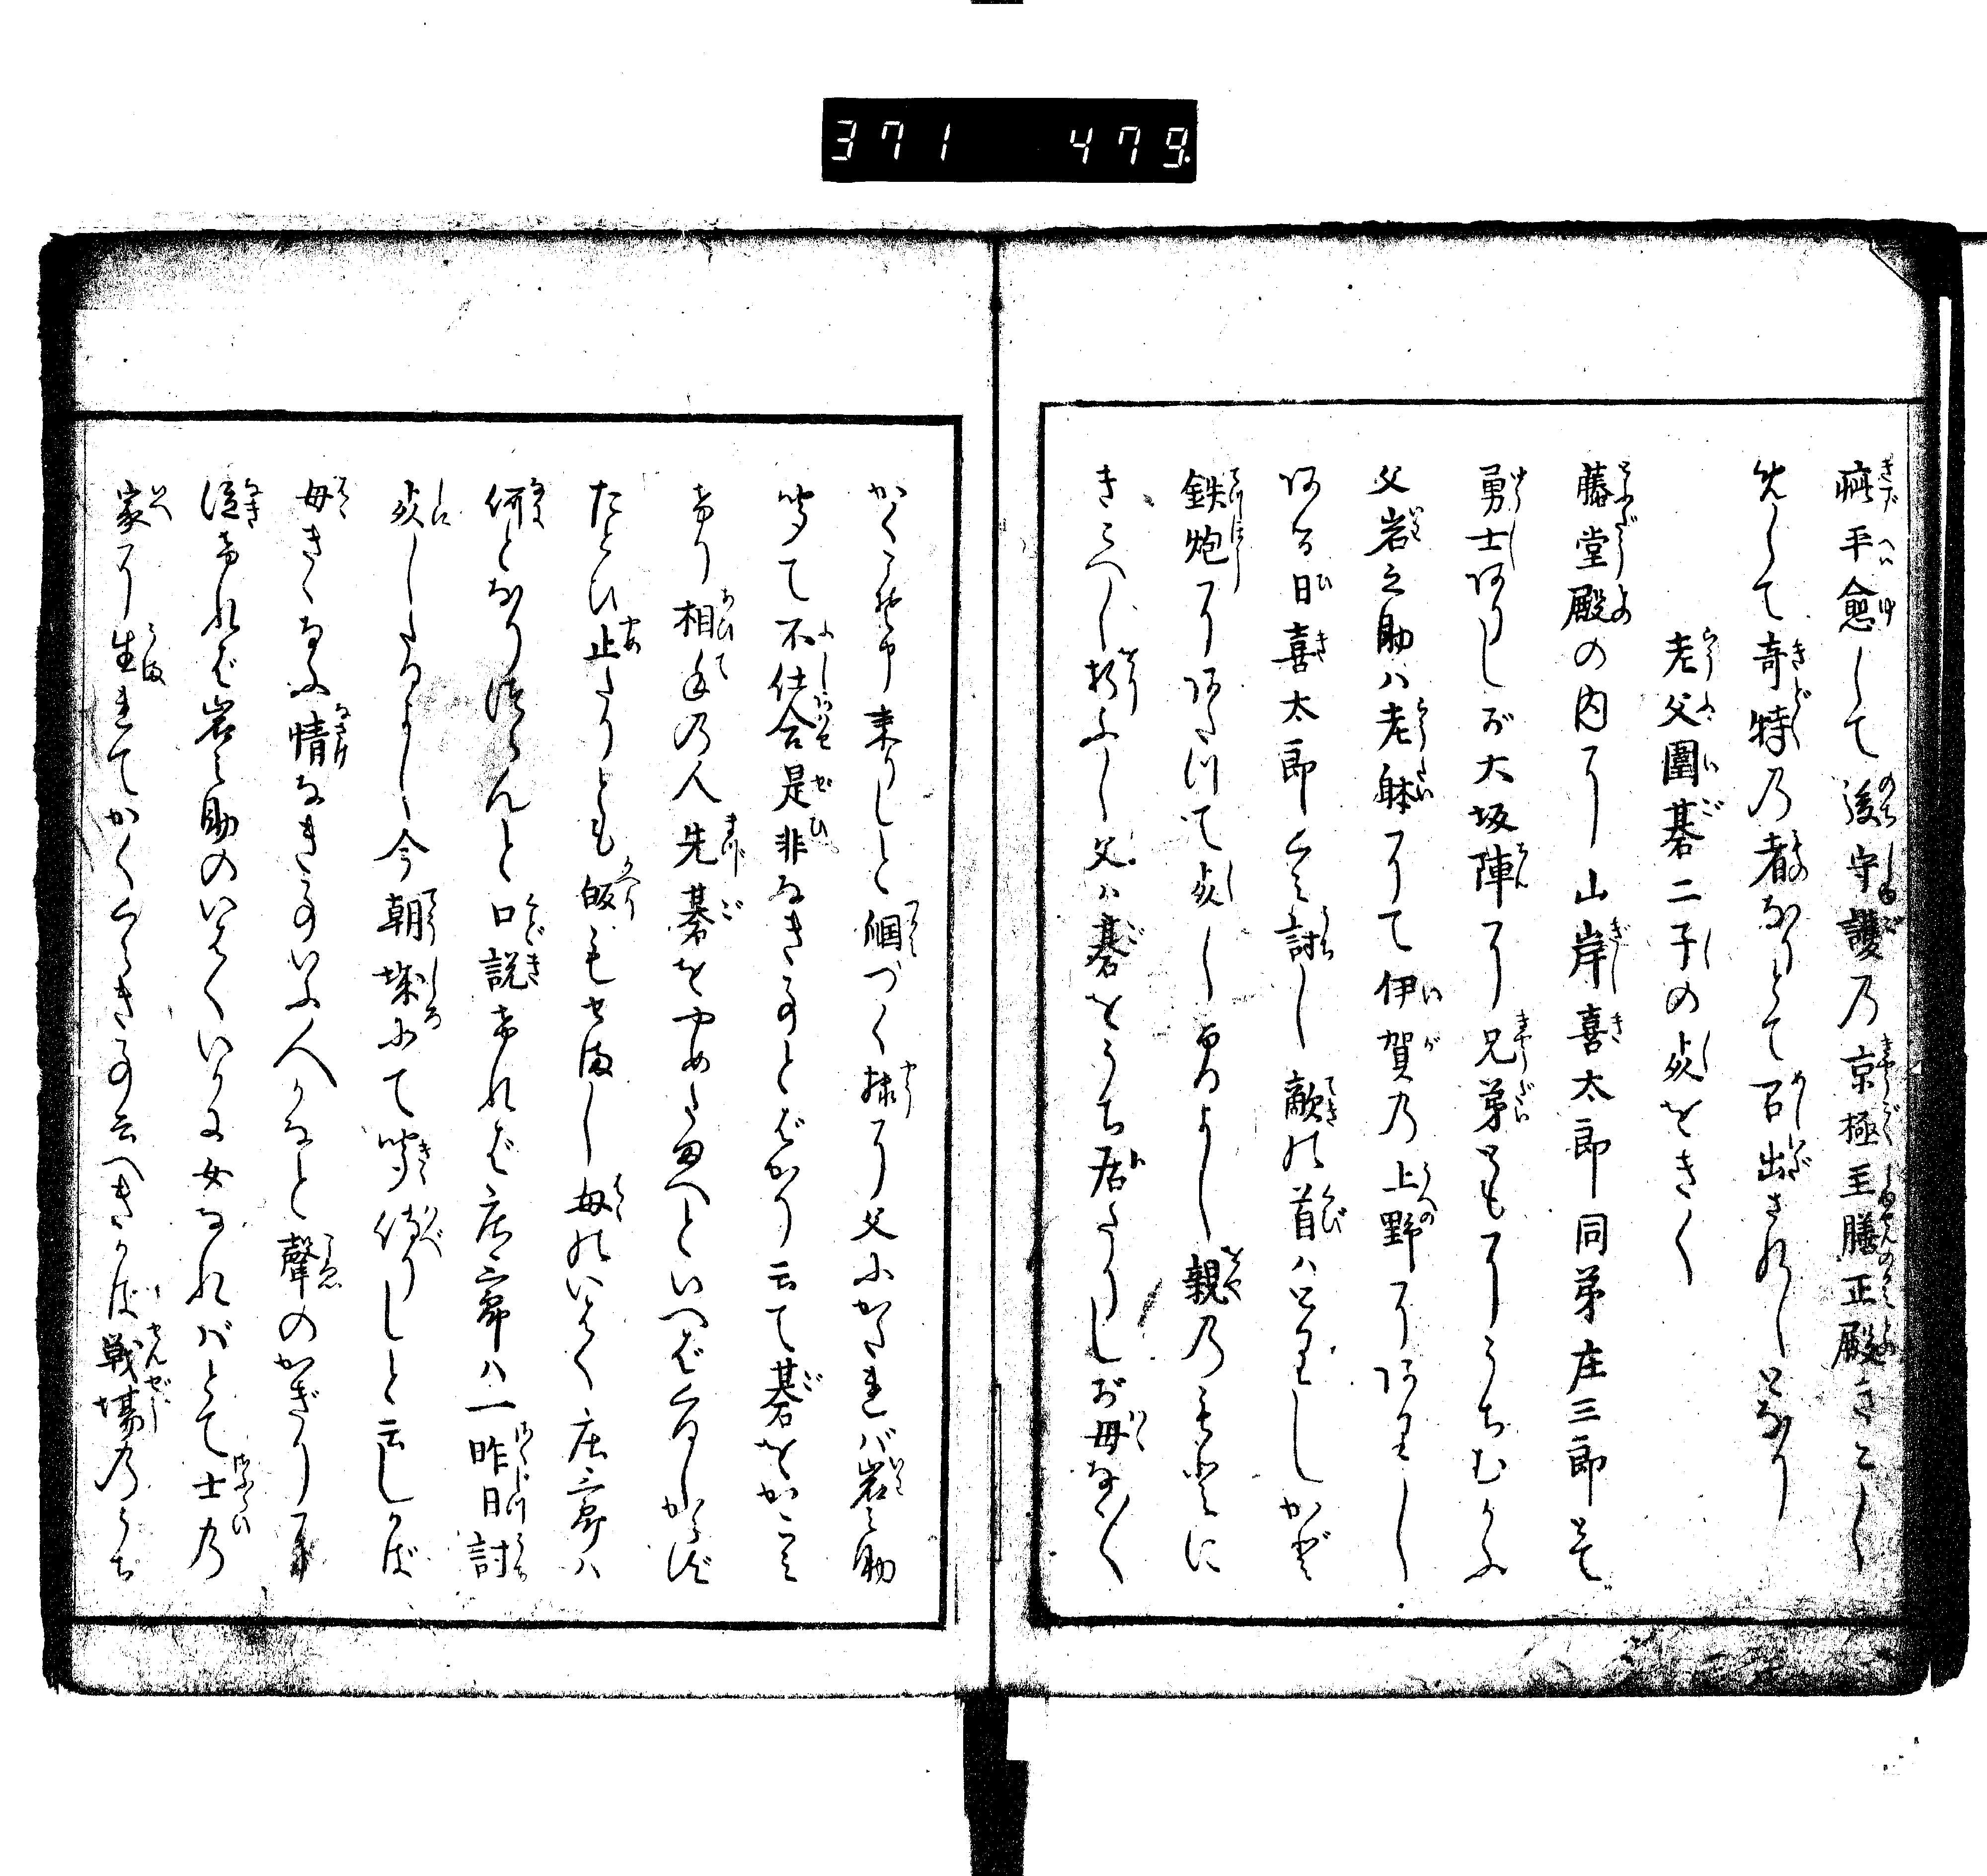 371 479
疵平愈して後守護乃京極主膳正殿きこし
先して奇特乃者なりとて召出されしとなり
老父圍碁二子の死をきく
藤堂殿の内に山岸喜太郎同弟庄三郎とて
勇士ありしが大坂陣に兄弟ともにうちむかふ
父岩之助ハ老躰にて伊賀乃上野にありし
ある日喜太郎くみ討し敵の首ハとりしかど
鉄炮にあたりて死しけるよし親乃もとに
きこへし折ふし父ハ碁をうち居たりしが母なく〳〵
かくこそ申来りしと個づく様に父にかたれバ岩之助
聞て不仕合是非なき事とばかり云て碁をかこみ
けり相手乃人先碁をやめたまへといへばくるしからず
たとひ止たりとも皈もせまし母のいはく庄三郎ハ
何となりつらんと口説けれバ庄三郎ハ一昨日討
死したるよし今朝城にて聞侍りしと云しかば
母きくよりなふ情なき事いふ人かなと聲のかぎりに
泣けれバ岩之助のいはくいかに女なれバとて士乃
家に生れてかくくらき事云へきかは戦場乃うち